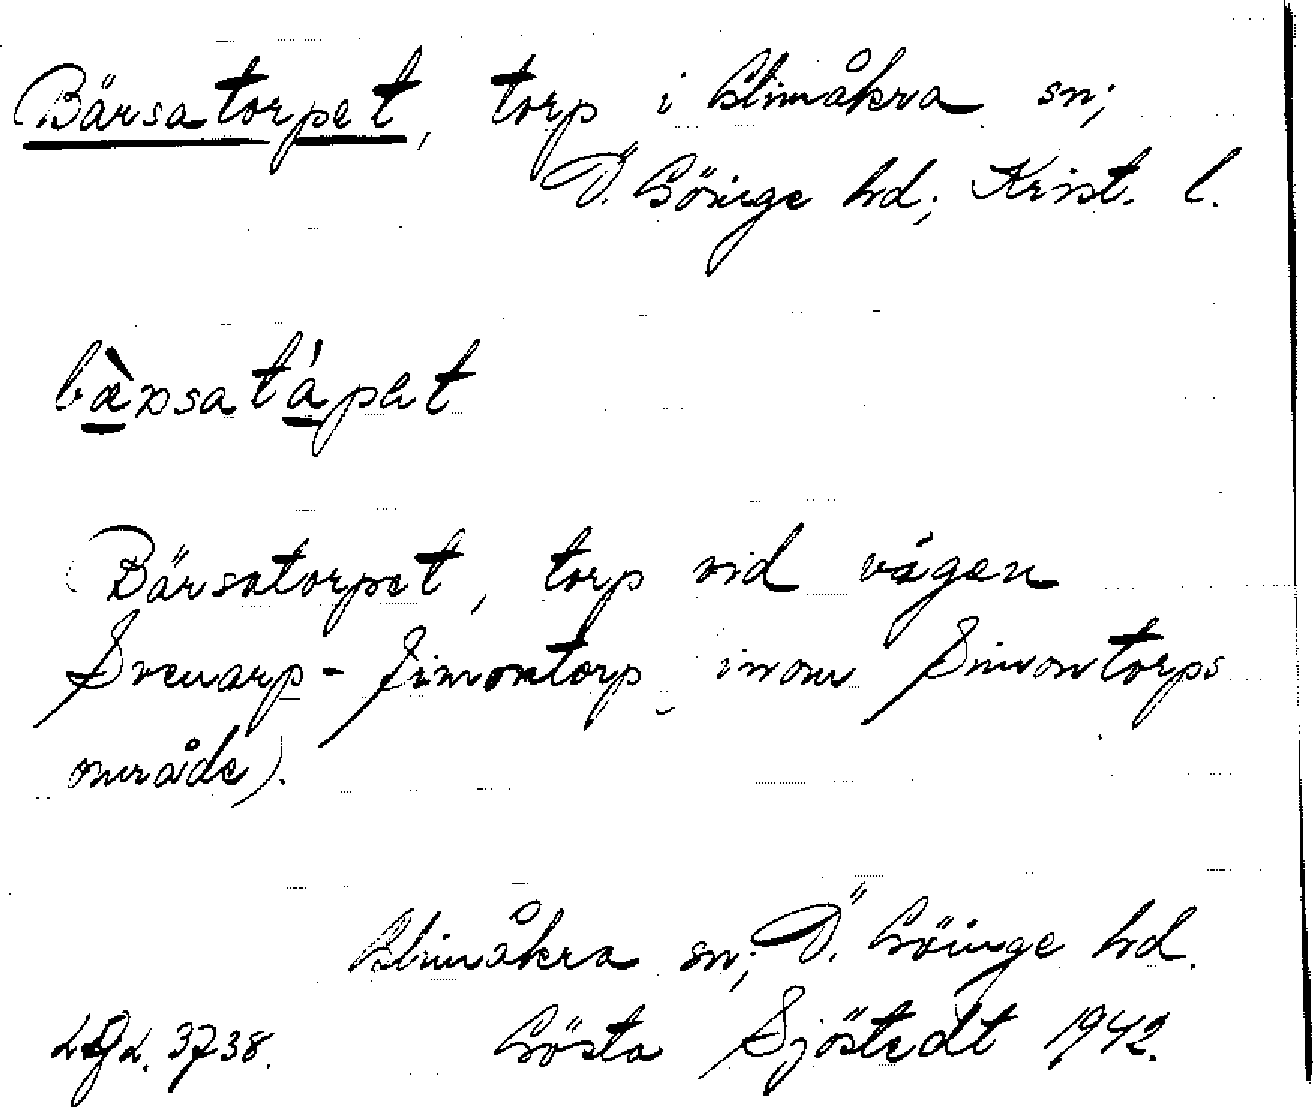 Bärsatorpet, torp i Glimåkra sn;
Ö. Göinge hd; Krist. l.
bæ̀rsatápat
Bärsatorpet, torp vid vägen
Svenarp - Simontorp inom Simontorps
område).
Glimåkra sn; Ö. Göinge hd.
3738. Gösta Sjöstedt 1942.